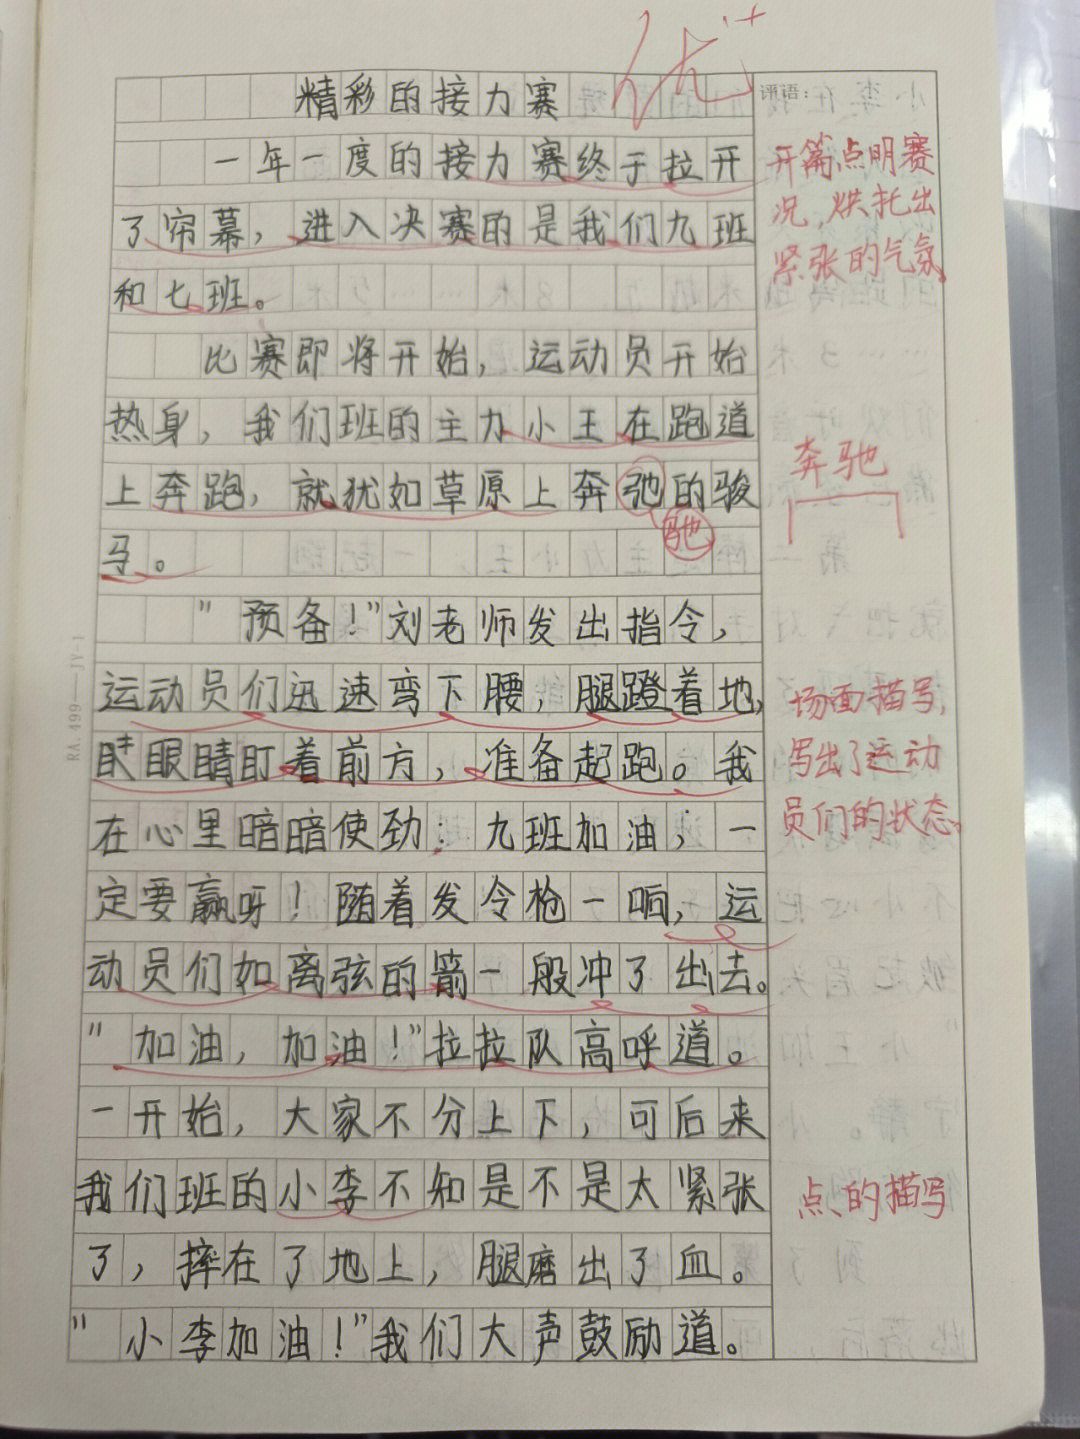 优+
精彩的接力赛
评语：
一年一度的接力赛终于拉开
开篇点明赛
了帘幕，进入决赛的是我们九班
况，烘托出
紧张的气氛。
和七班。
比赛即将开始，运动员开始
热身，我们班的主力小王在跑道
奔驰
上奔跑，就犹如草原上奔弛的骏
驰
马。
"预备！"刘老师发出指令，
运动员们迅速弯下腰，腿蹬着地，
场面描写，
写出了运动
眼睛盯着前方，准备起跑。我
员们的状态。
在心里暗暗使劲：九班加油，一
定要赢呀！随着发令枪一响，运
动员们如离弦的箭一般冲了出去。
"加油，加油！"拉拉队高呼道。
一开始，大家不分上下，可后来
我们班的小李不知是不是太紧张
点的描写
了，摔在了地上，腿磨出了血。
"小李加油！"我们大声鼓励道。
RA 499——JY-1